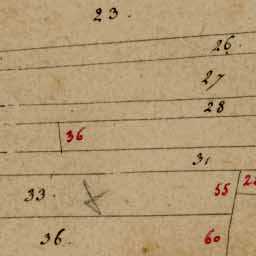 23.
26.
27
28
36
31
33.
55
36.
60